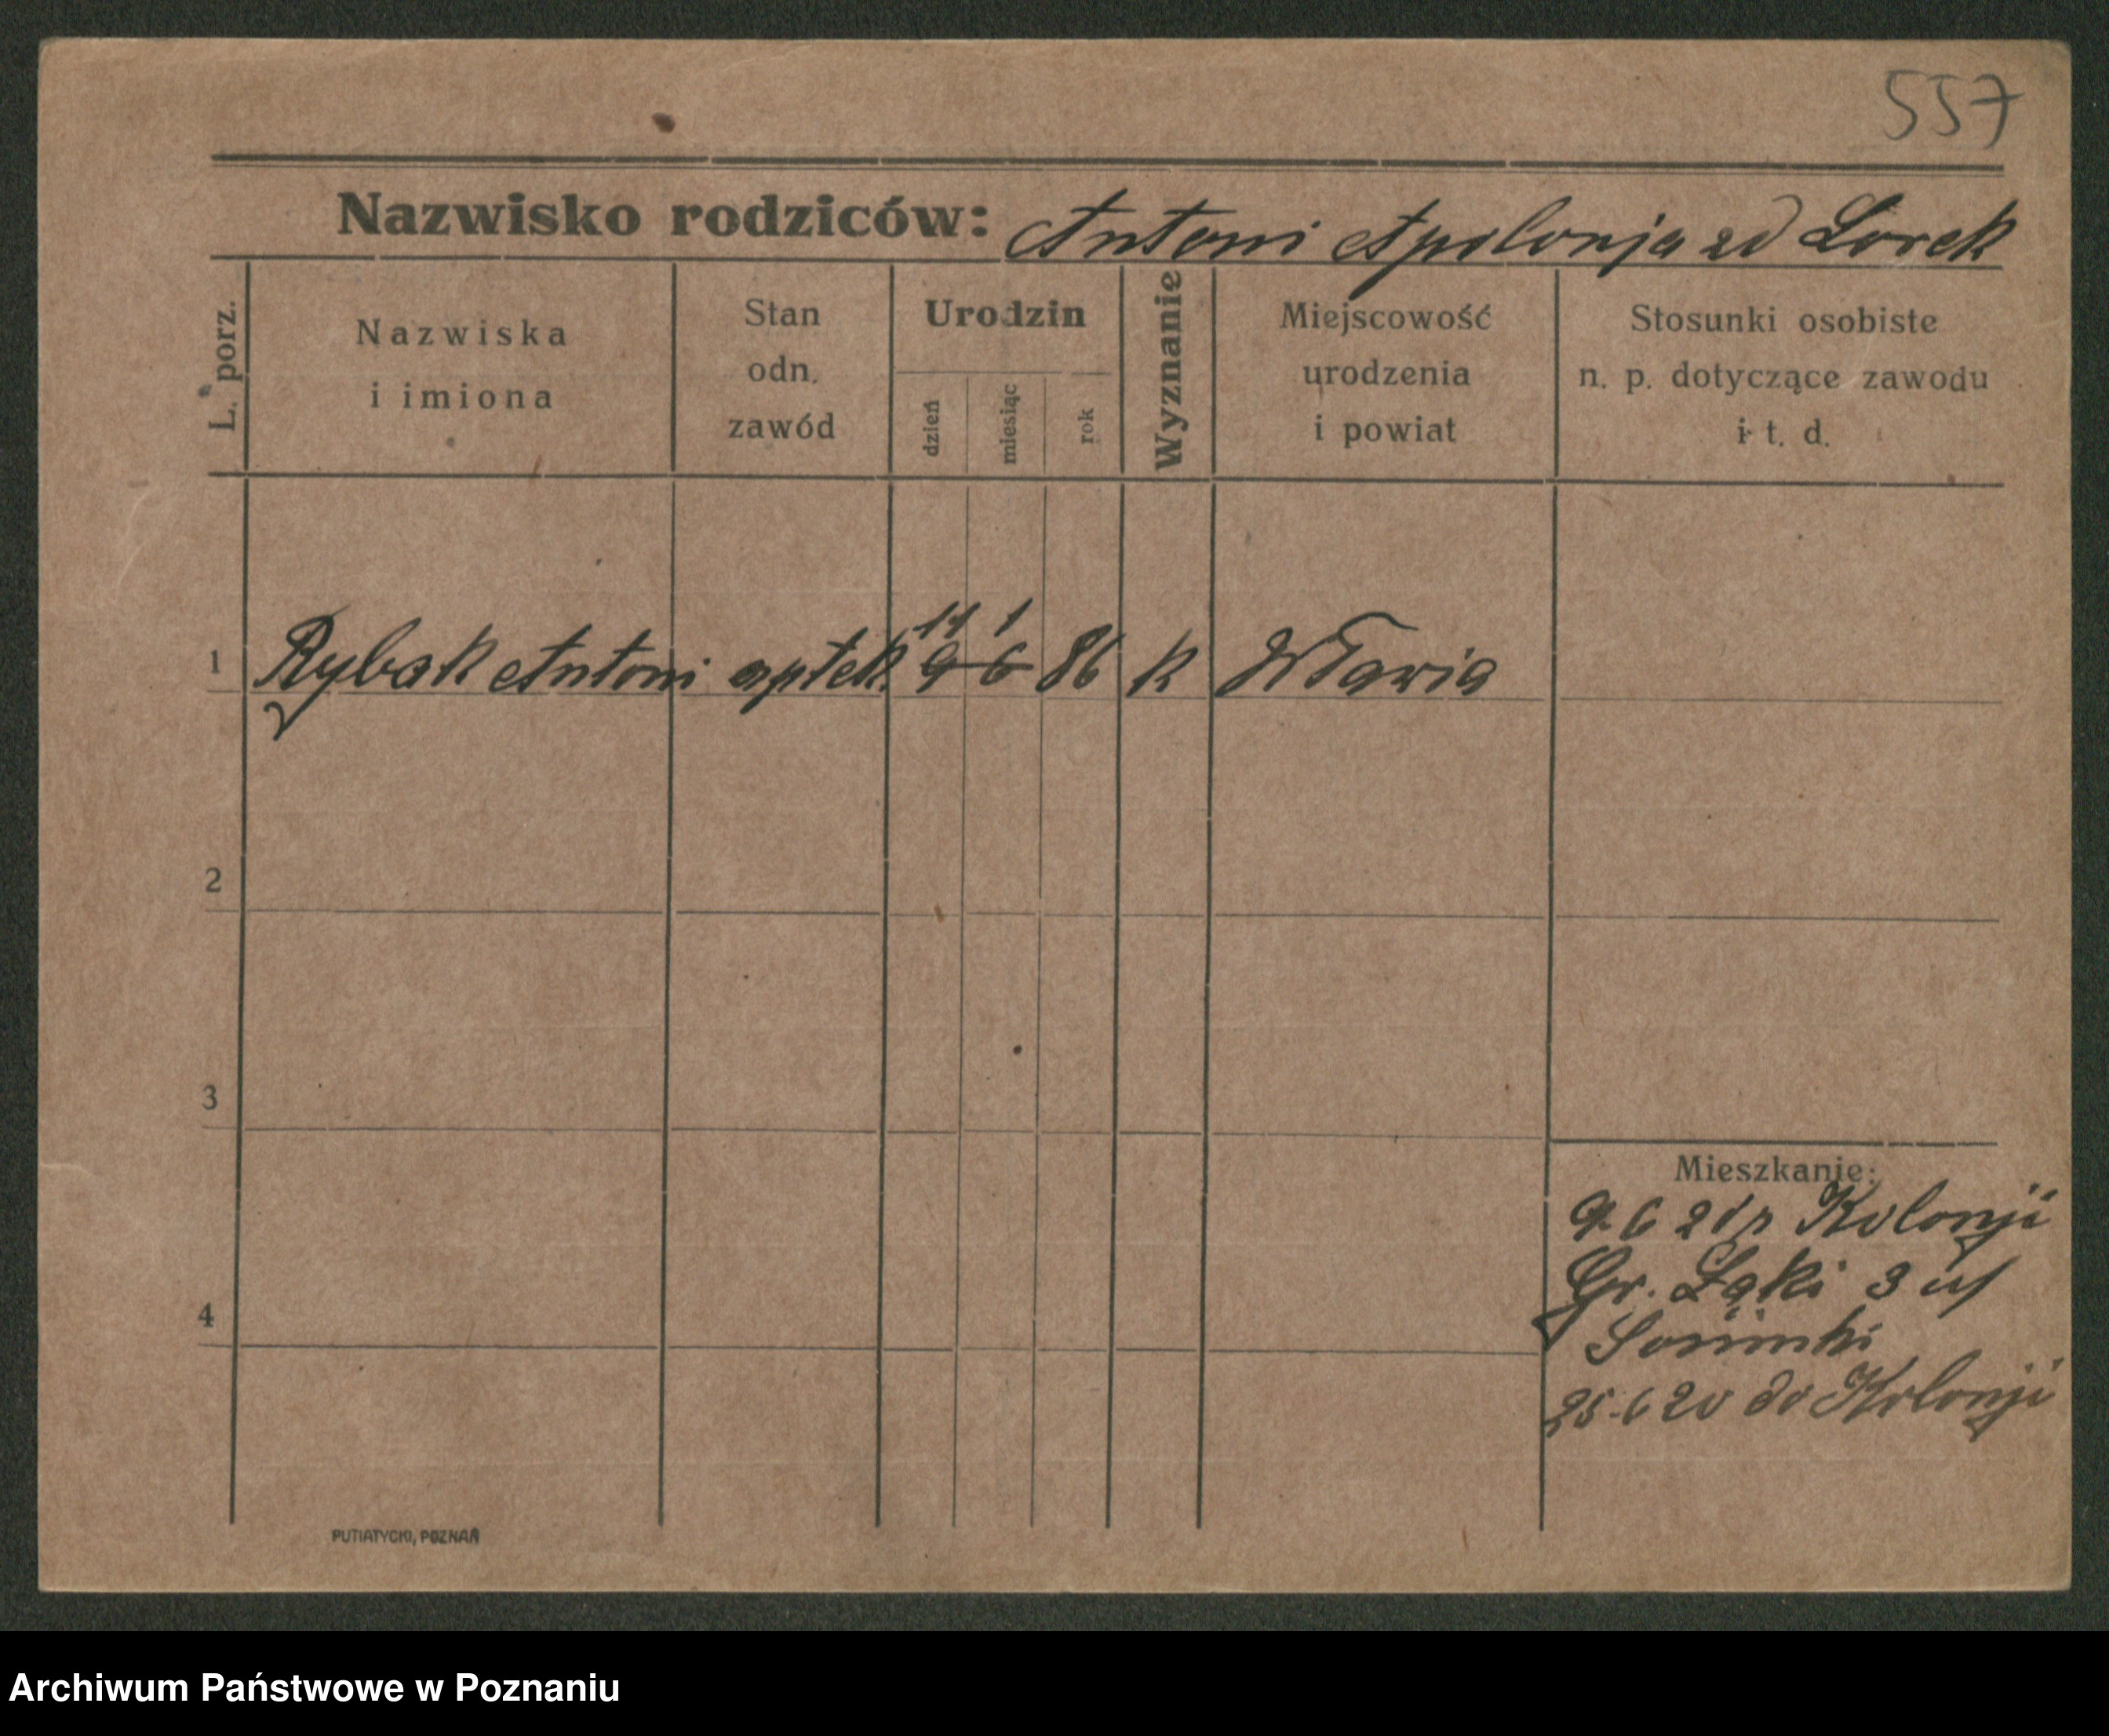 557
Nazwisko rodziców: Antoni Apolonja zd Lorek
L. porz.
Nazwiska
i imiona
Stan
odn.
zawód
Urodzin
dzień
miesiąc
rok
Wyznanie
Miejscowość
urodzenia
i powiat
Stosunki osobiste
n. p. dotyczące zawodu
i t. d.
11 1
1 Rybak Antoni aptek. 9 6 86 k
2
3
4
Mieszkanie:
9. 6 21 Kolonji
Gr. Łąki 3
25-6 20 do Kolonji
PUTIATYCKI, POZNAŃ
Archiwum Państwowe w Poznaniu